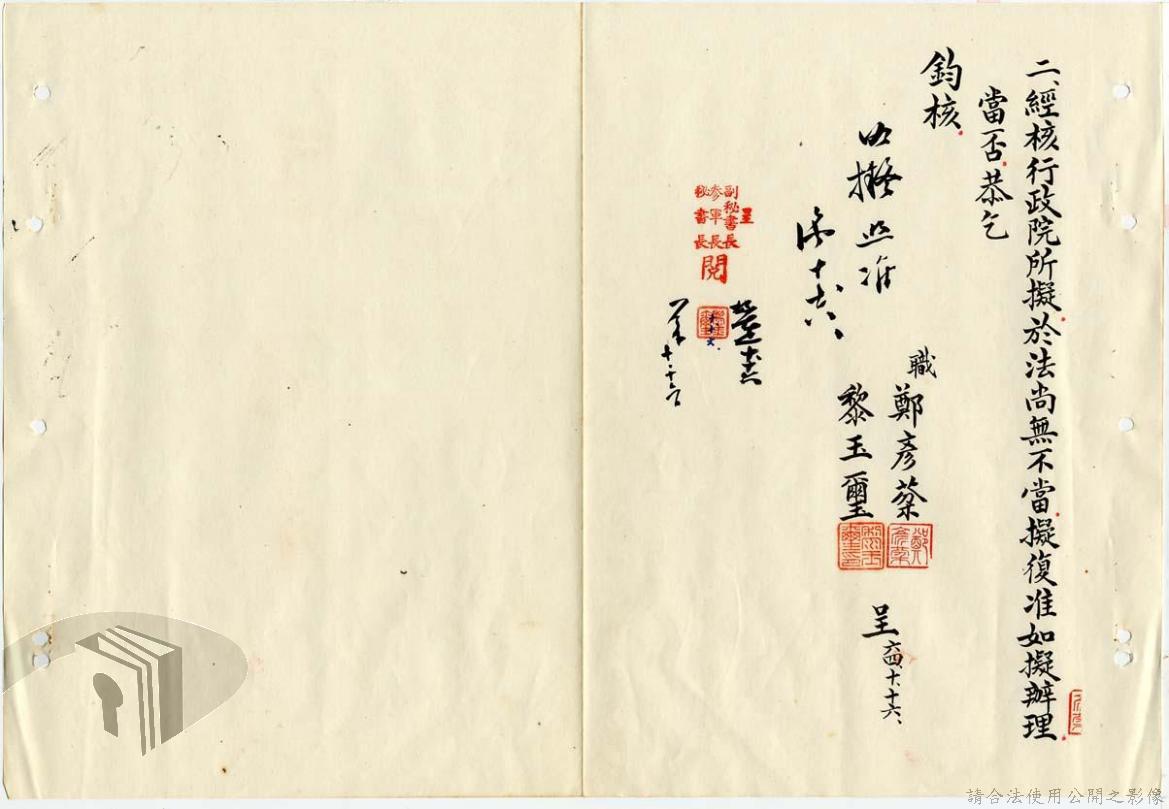 二、經核行政院所擬於法尚無不當擬復准如擬辦理
當否恭乞
鈞核
如擬照准
職 鄭彥棻
黎玉璽
呈 六四、十、十六、
呈
副秘書長
參軍長
秘書長
閱
十、十六
請合法使用公開之影像